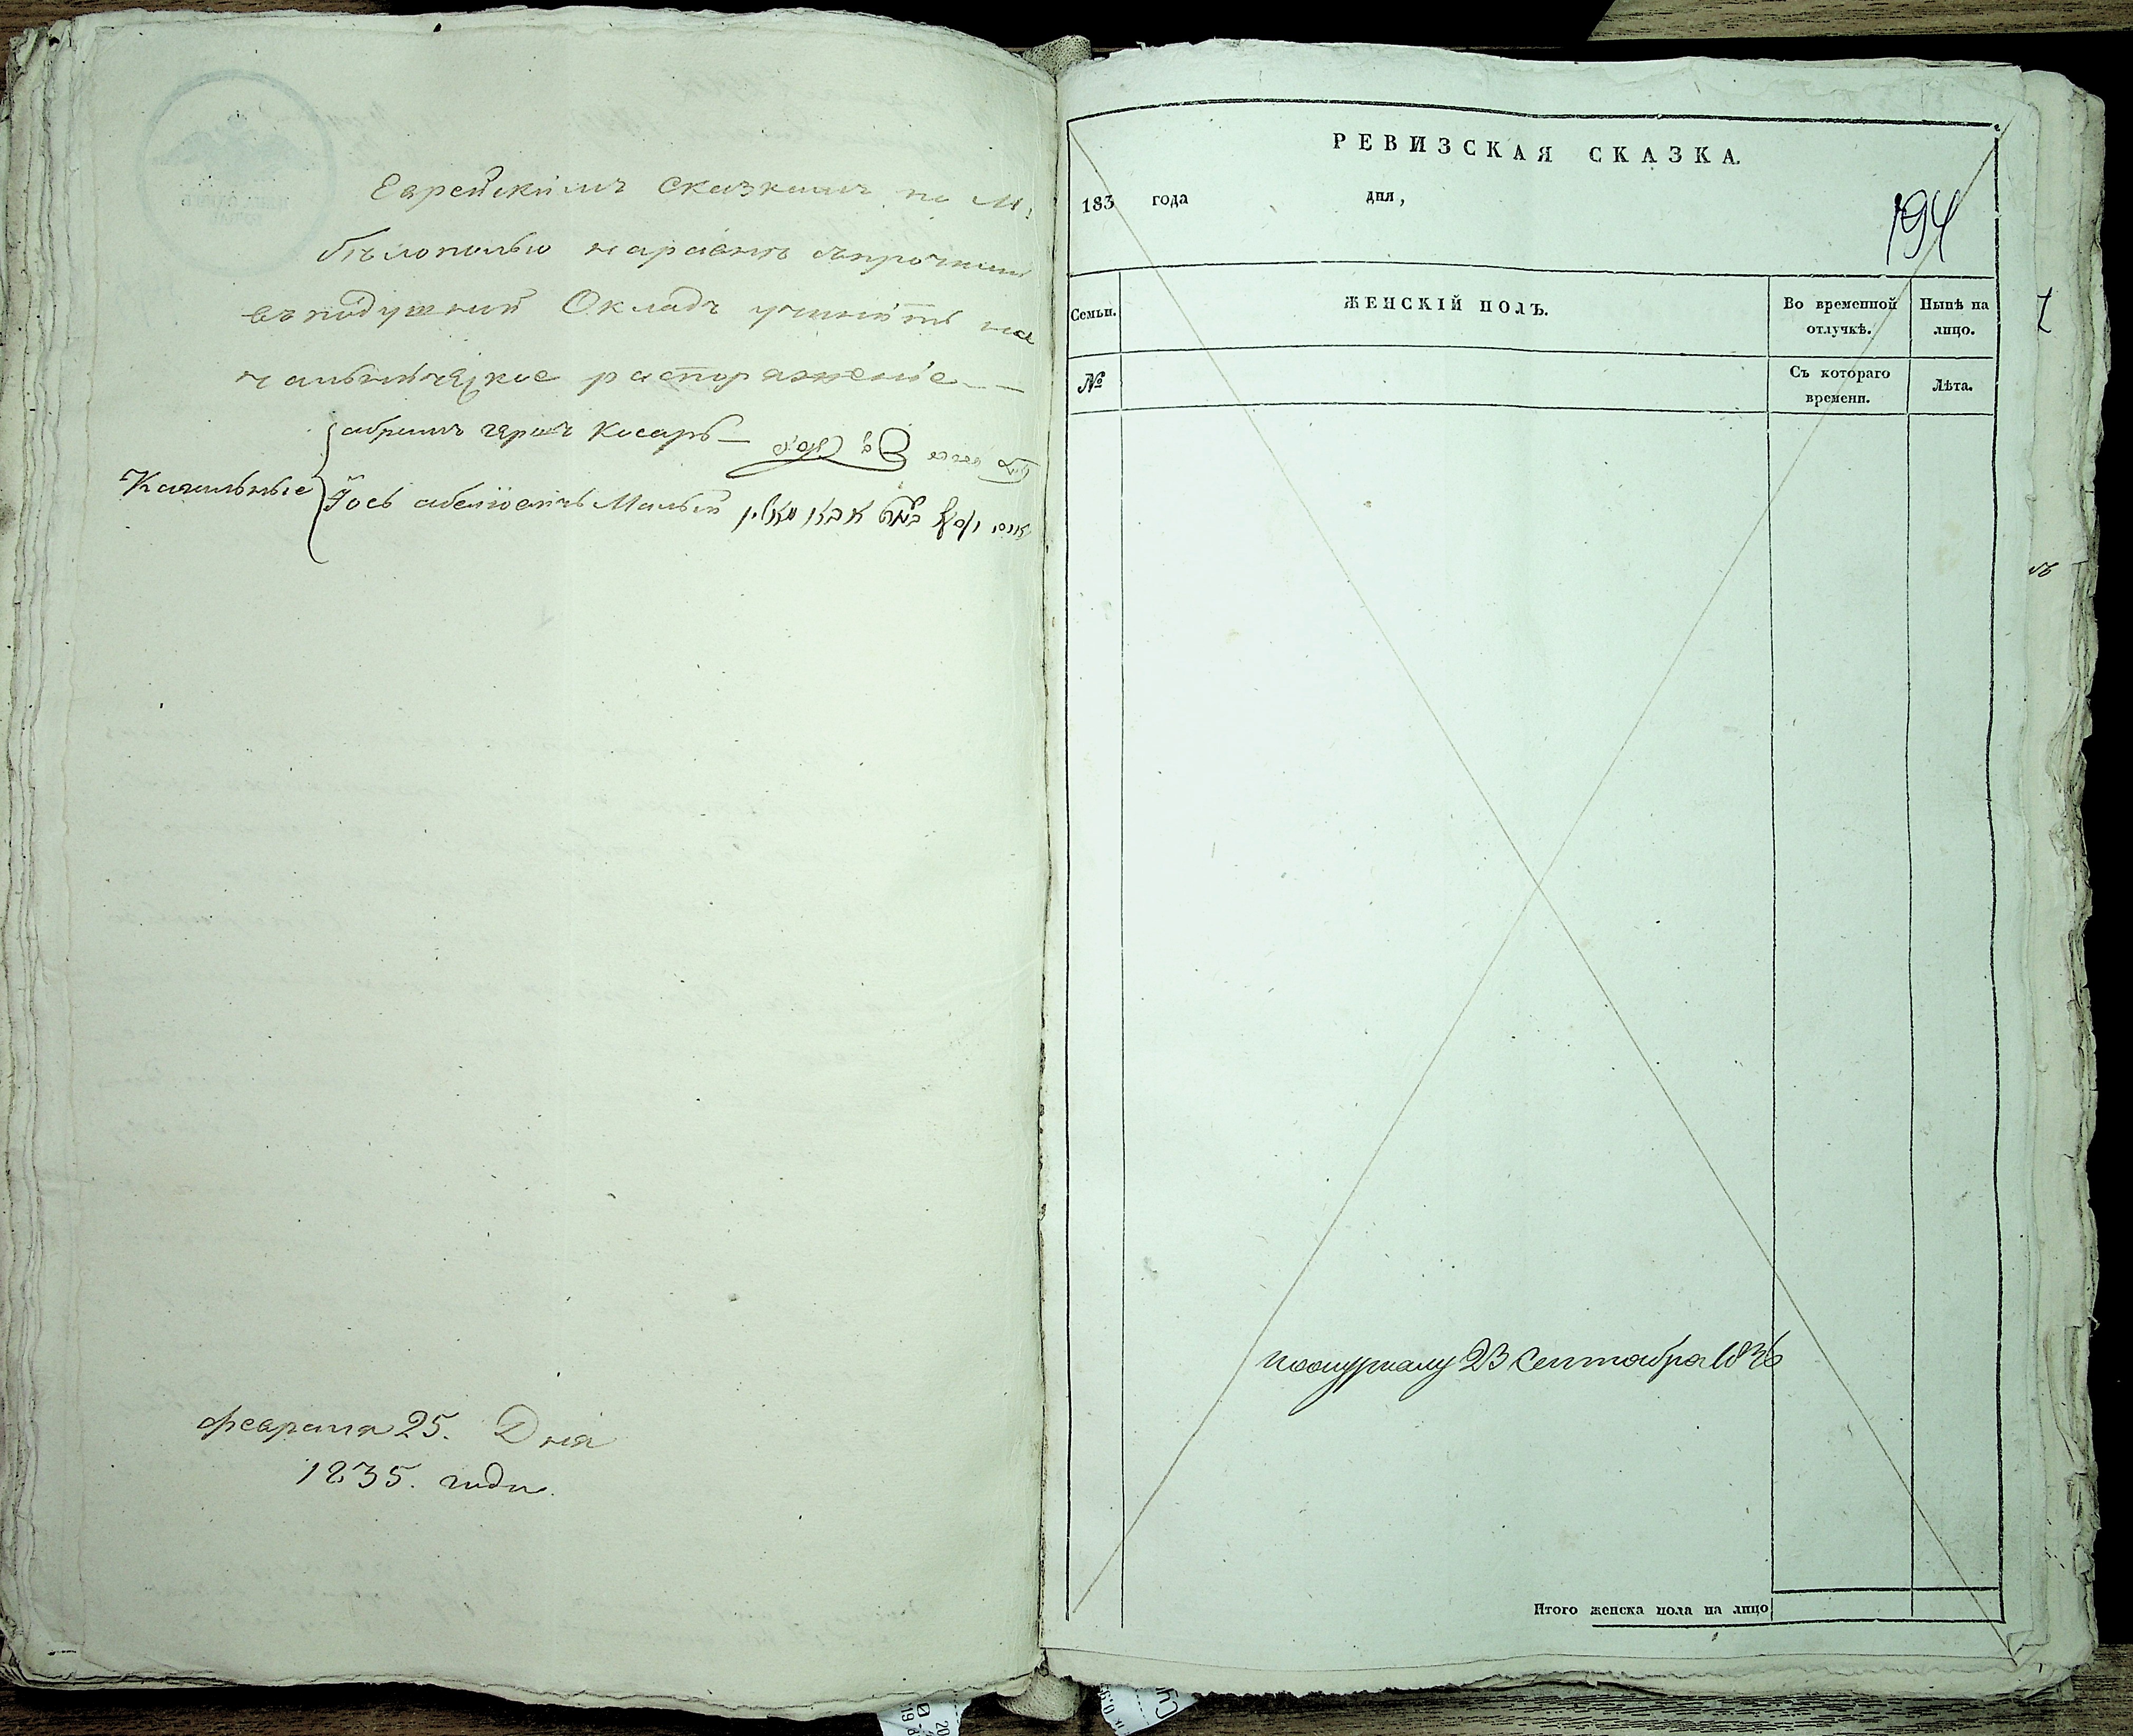 Еврейскимъ Сказкамъ по М:
Бѣлополью наравнѣ съпрочими
въподушный Окладъ учинить на
чальническое распоряжение
абрамъ гершъ Косаръ
Кагальные
Іось абелиовичъ Малый
февраля 25. Дня
1835. года.
РЕВИЗСКАЯ СКАЗКА.
183 года дня,
194
Семьи.
ЖЕНСКІЙ ПОЛЪ.
Во временной отлучкѣ.
Нынѣ на лицо.
№
Съ котораго времени.
Лѣта.
пожурналу 23 Сентября 1836
Итого женска пола на лицо